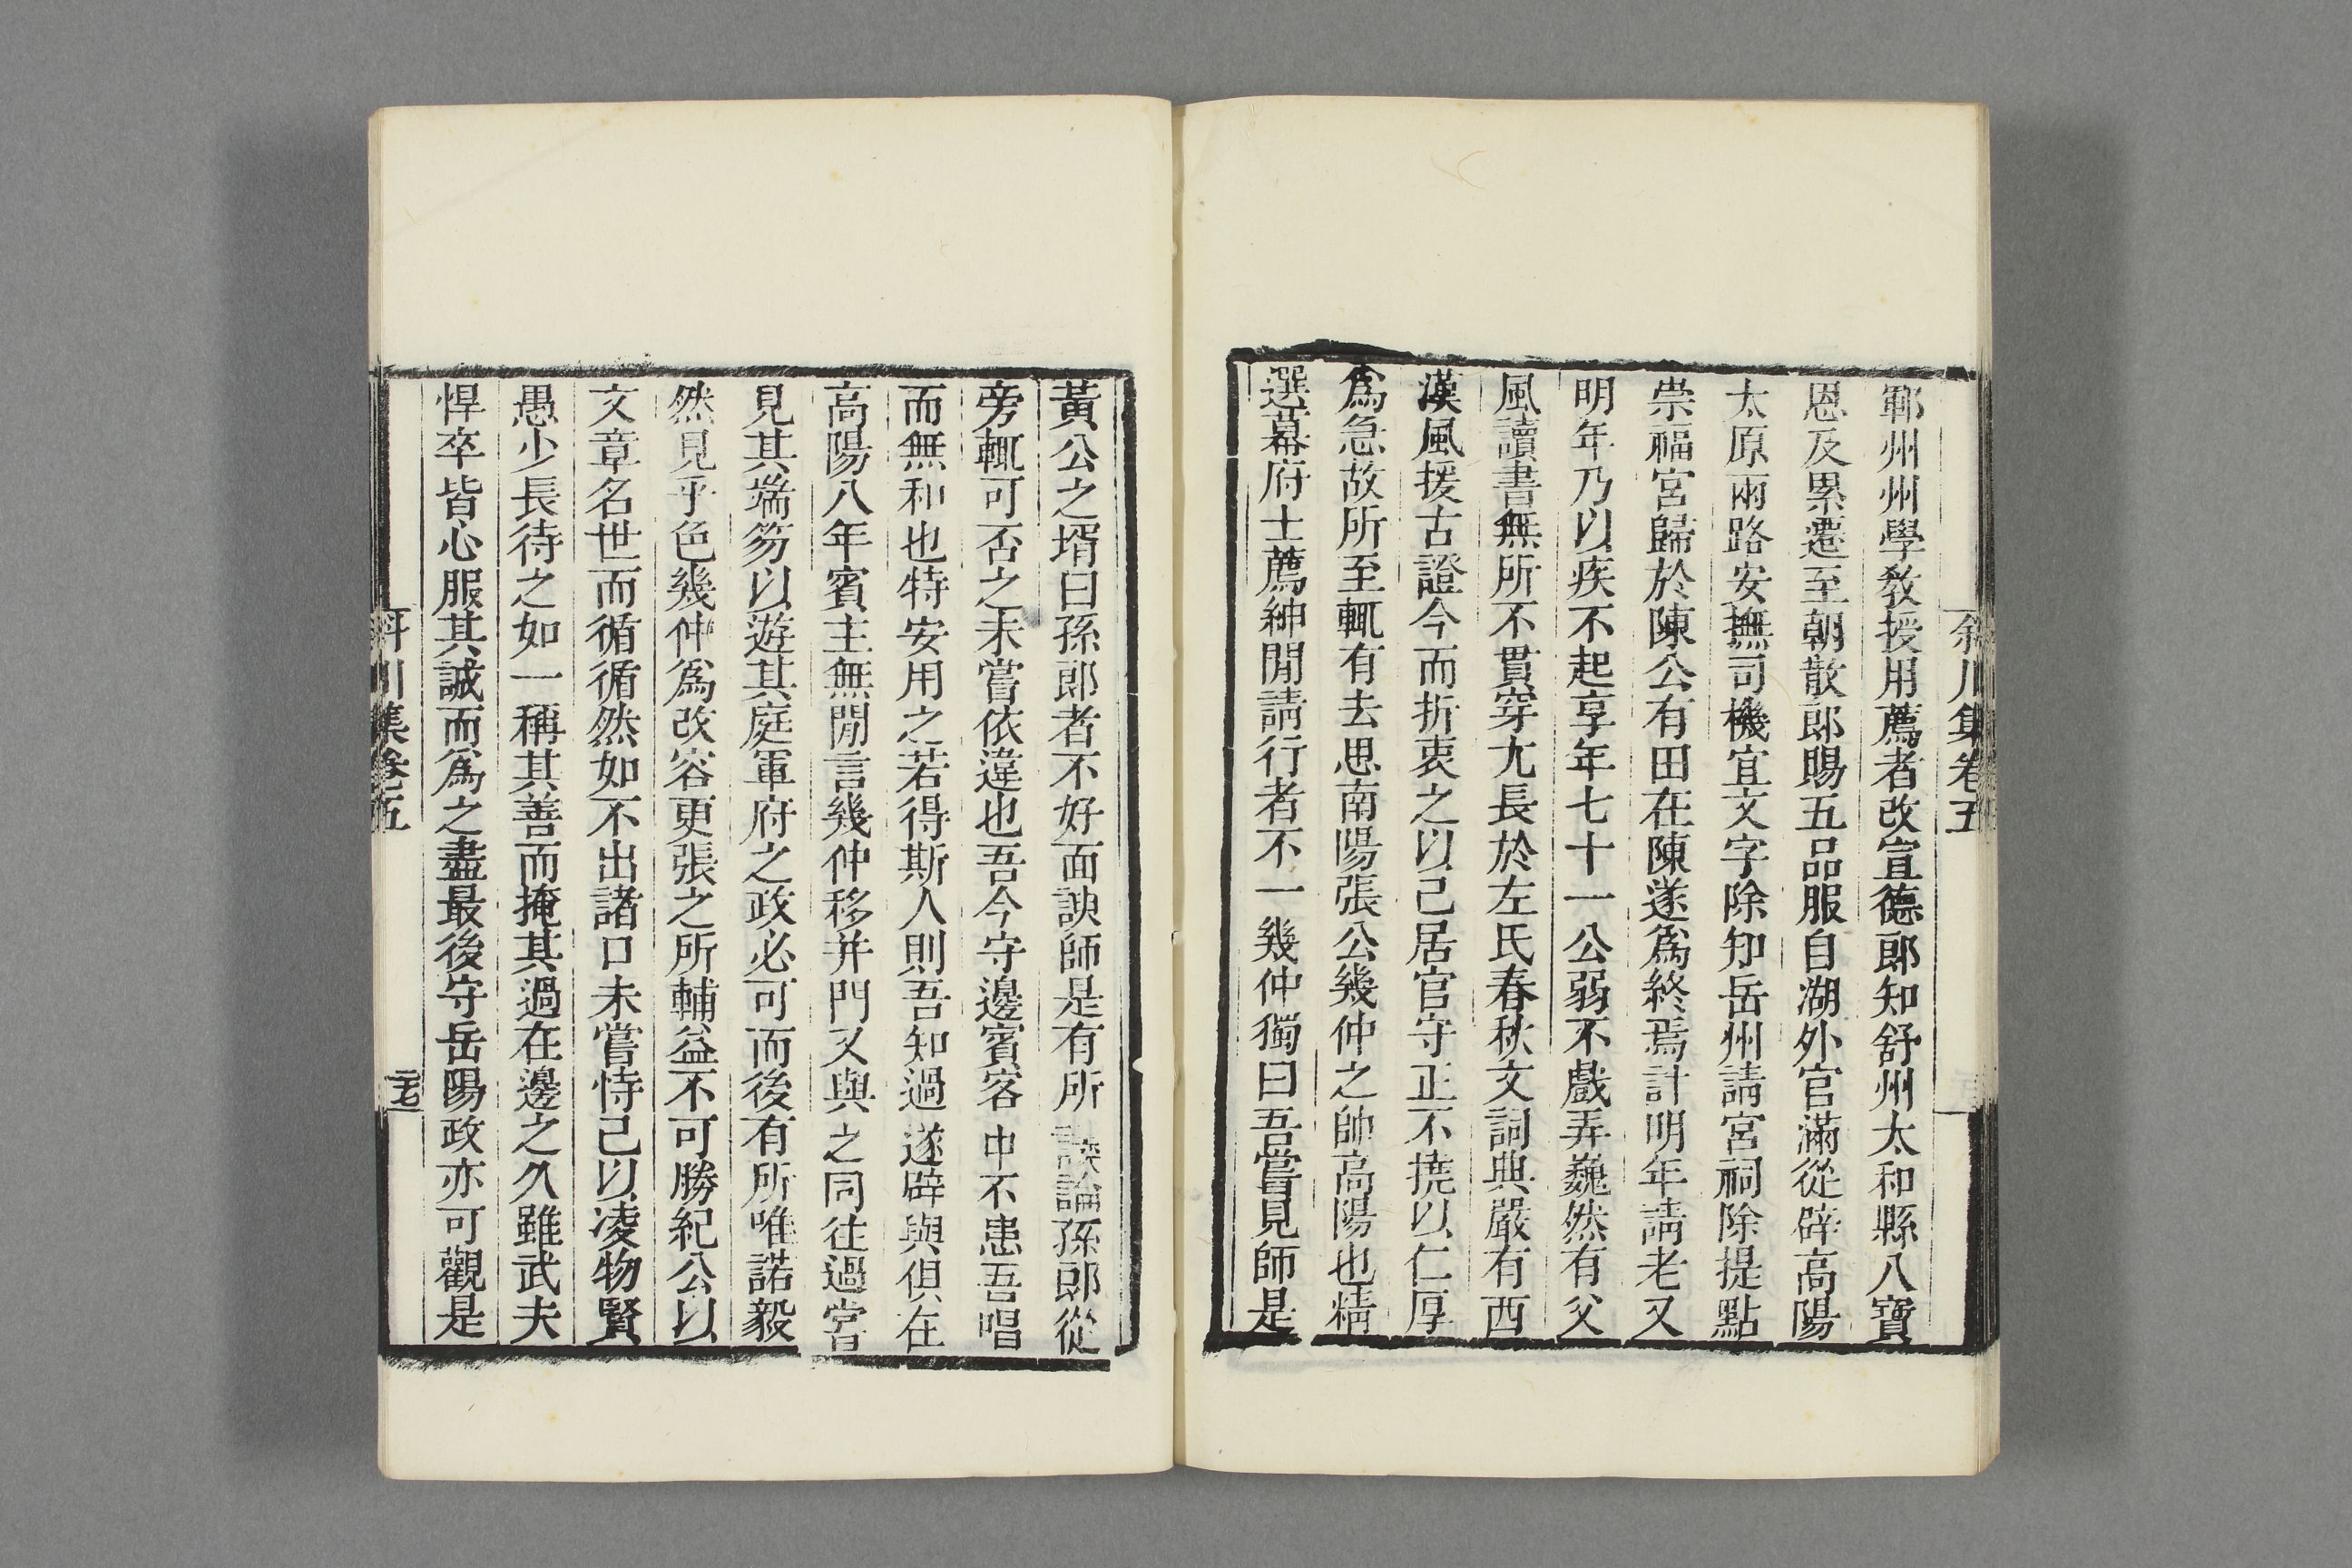 斜川集卷五
鄆州州學敎授用薦者改宣德郎知舒州太和縣八寶
恩及累遷至朝散郎賜五品服自湖外官滿從辟高陽
太原兩路安撫司機宜文字除知岳州請宮祠除提點
崇福宮歸於陳公有田在陳遂爲終焉計明年請老又
明年乃以疾不起享年七十一公弱不戲弄巍然有父
風讀書無所不貫穿尢長於左氏春秋文詞典嚴有西
漢風援古證今而折衷之以己居官守正不撓以仁厚
爲急故所至輒有去思南陽張公幾仲之帥高陽也精
選幕府士薦紳閒請行者不一幾仲獨曰吾嘗見師是
黃公之壻曰孫郎者不好面諛師是有所談論孫郎從
旁輒可否之未嘗依違也吾今守邊賓客中不患吾唱
而無和也特安用之若得斯人則吾知過遂辟與俱在
高陽八年賓主無閒言幾仲移并門又與之同往過嘗
見其端笏以遊其庭軍府之政必可而後有所唯諾毅
然見乎色幾仲爲改容更張之所輔益不可勝紀公以
文章名世而循循然如不出諸口未嘗恃己以凌物賢
愚少長待之如一稱其善而掩其過在邊之久雖武夫
悍卒皆心服其誠而爲之盡最後守岳陽政亦可觀是
斜川集卷五